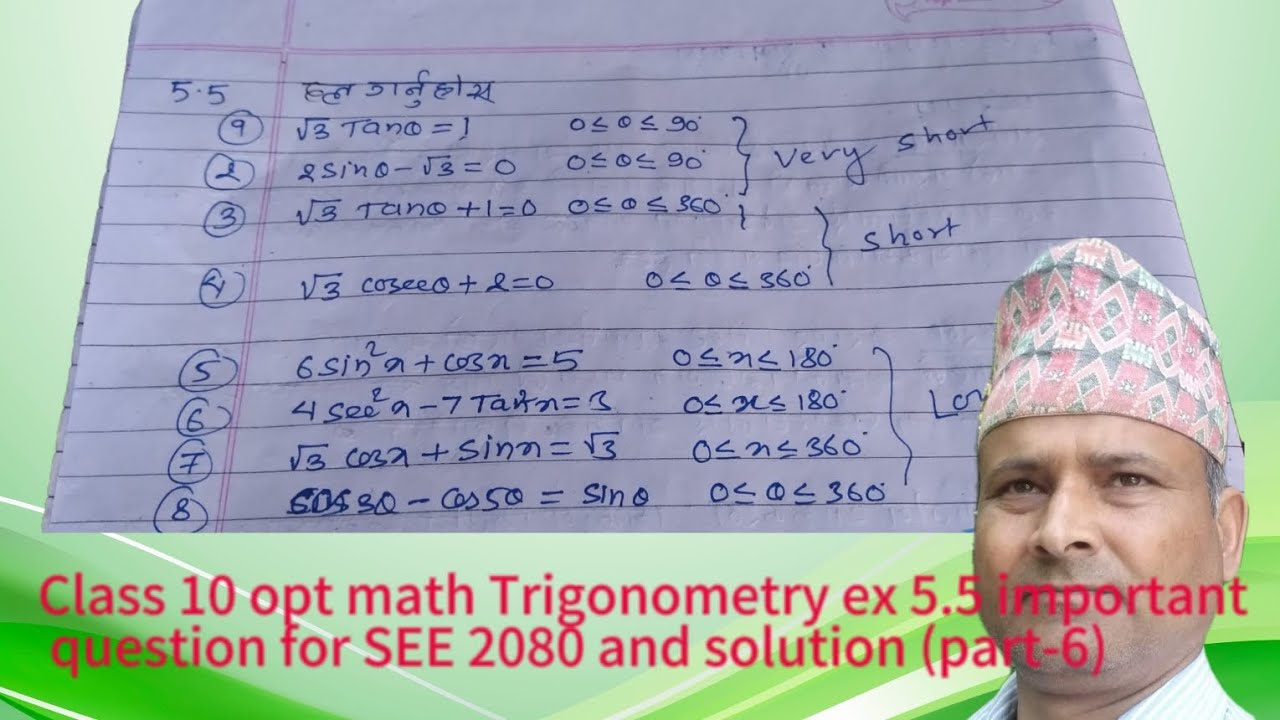 5.5 हल गर्नुहोस्
१ √3 Tanθ = 1 0 ≤ θ ≤ 90°
2 2sinθ - √3 = 0 0 ≤ θ ≤ 90° very short
3 √3 Tanθ + 1 = 0 0 ≤ θ ≤ 360°
short
4 √3 cosecθ + 2 = 0 0 ≤ θ ≤ 360°
5 6sin²x + cosx = 5 0 ≤ x ≤ 180°
6 4sec²x - 7Tan²x = 3 0 ≤ x ≤ 180°
7 √3 cosx + sinx = √3 0 ≤ x ≤ 360°
8 cos3θ - cos5θ = sinθ 0 ≤ θ ≤ 360°
Class 10 opt math Trigonometry ex 5.5 important
question for SEE 2080 and solution (part-6)